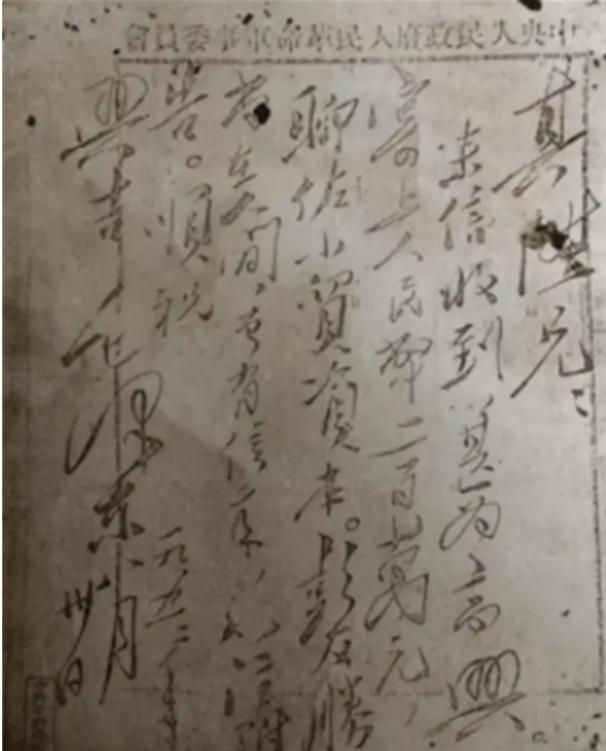 中央人民政府人民革命軍事委員會
其陞兄：
來信收到，甚為高興。
寄上人民幣二百萬元，
聊佐小貿資本。彭友勝
尚在人間，曾有信 附
告。順祝
興吉 毛澤東
一九五二年
八月
卅日